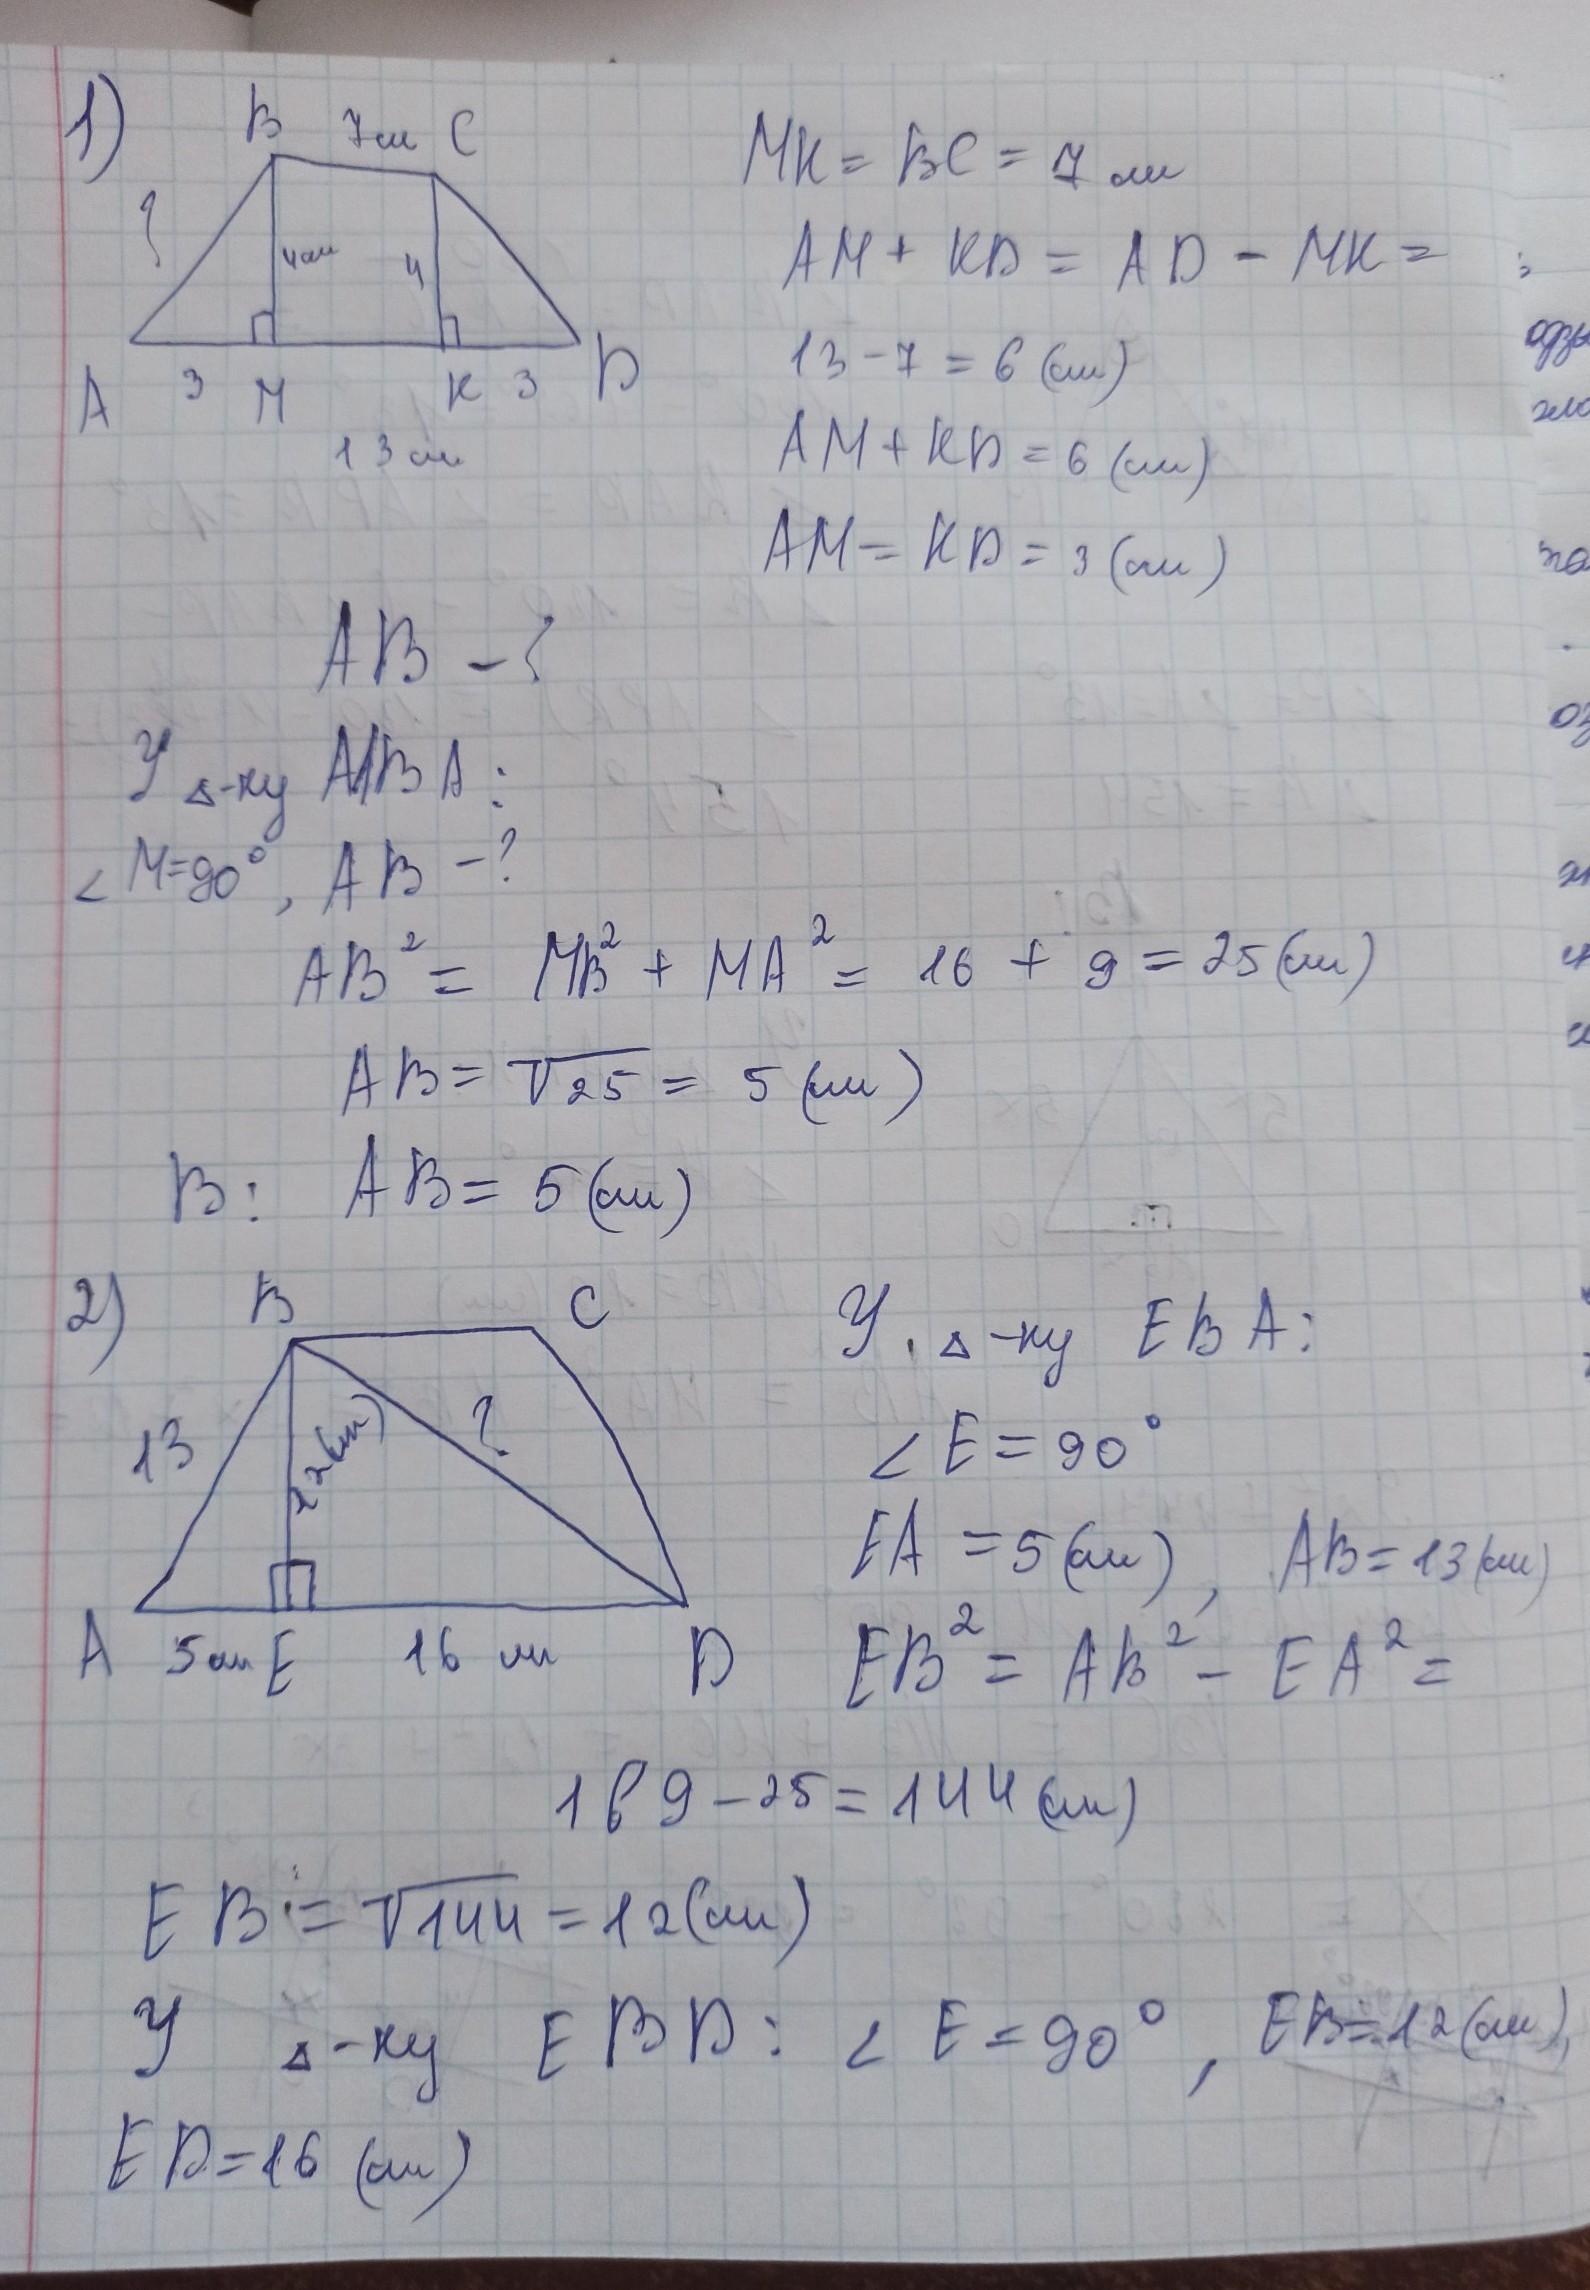 1)
B 7см C
?
4см 4
A 3 M K 3 D
13 см
MK = BC = 7 см
AM + KD = AD - MK =
13 - 7 = 6 (см)
AM + KD = 6 (см)
AM = KD = 3 (см)
AB - ?
У △-ку MBA:
∠M=90°, AB - ?
AB² = MB² + MA² = 16 + 9 = 25 (см)
AB = √25 = 5 (см)
В: AB = 5 (см)
2)
B C
13 12(см) ?
A 5см E 16 см D
У △-ку EBA:
∠E = 90°
EA = 5 (см), AB = 13 (см)
EB² = AB² - EA² =
169 - 25 = 144 (см)
EB = √144 = 12 (см)
У △-ку EBD: ∠E = 90°, EB = 12 (см),
ED = 16 (см)